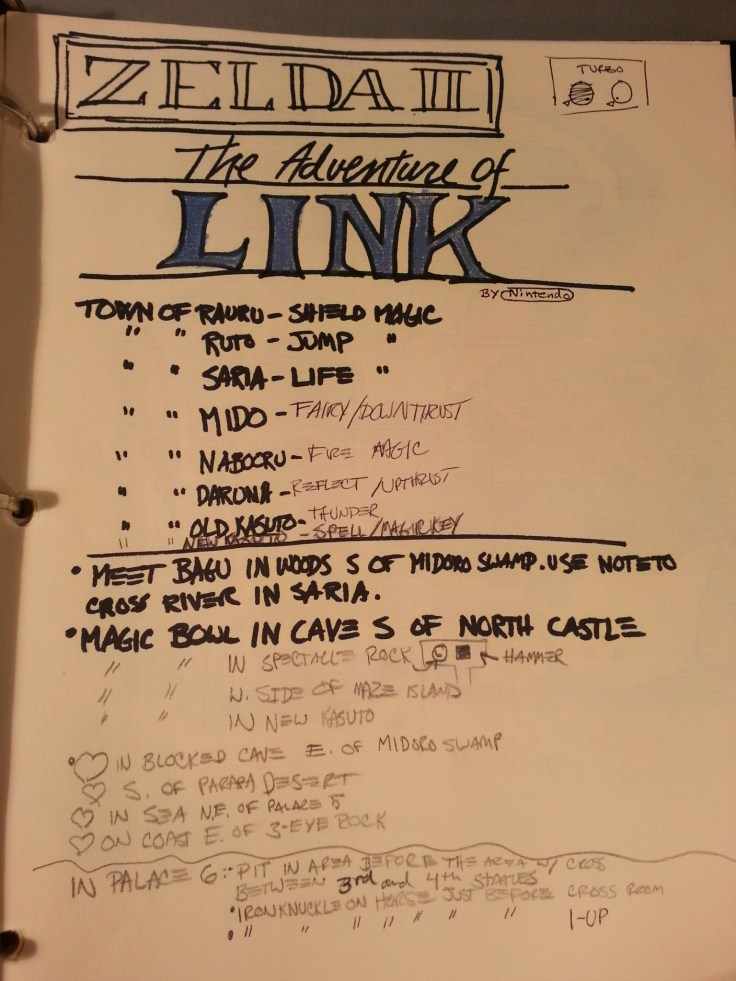 ZELDA II
TURBO
The Adventure of
LINK
BY Nintendo
TOWN OF RAURU - SHIELD MAGIC
" " RUTO - JUMP "
" " SARIA - LIFE "
" " MIDO - FAIRY/DOWNTHRUST
" " NABOORU - FIRE MAGIC
" " DARUNA - REFLECT/UPTHRUST
" " OLD KASUTO - THUNDER
" " NEW KASUTO - SPELL/MAGIC KEY
• MEET BAGU IN WOODS S OF MIDORO SWAMP. USE NOTE TO
CROSS RIVER IN SARIA.
• MAGIC BOWL IN CAVE S OF NORTH CASTLE
" " IN SPECTACLE ROCK HAMMER
" " W. SIDE OF MAZE ISLAND
" " IN NEW KASUTO
• ♡ IN BLOCKED CAVE E. OF MIDORO SWAMP
♡ S. OF PARAPA DESERT
♡ IN SEA N.E. OF PALACE 5
♡ ON COAST E. OF 3-EYE ROCK
IN PALACE 6: • PIT IN AREA BEFORE THE AREA W/ CROSS
BETWEEN 3rd and 4th STATUES
• IRONKNUCKLE ON HORSE JUST BEFORE CROSS ROOM
• " " " " " " " 1-UP